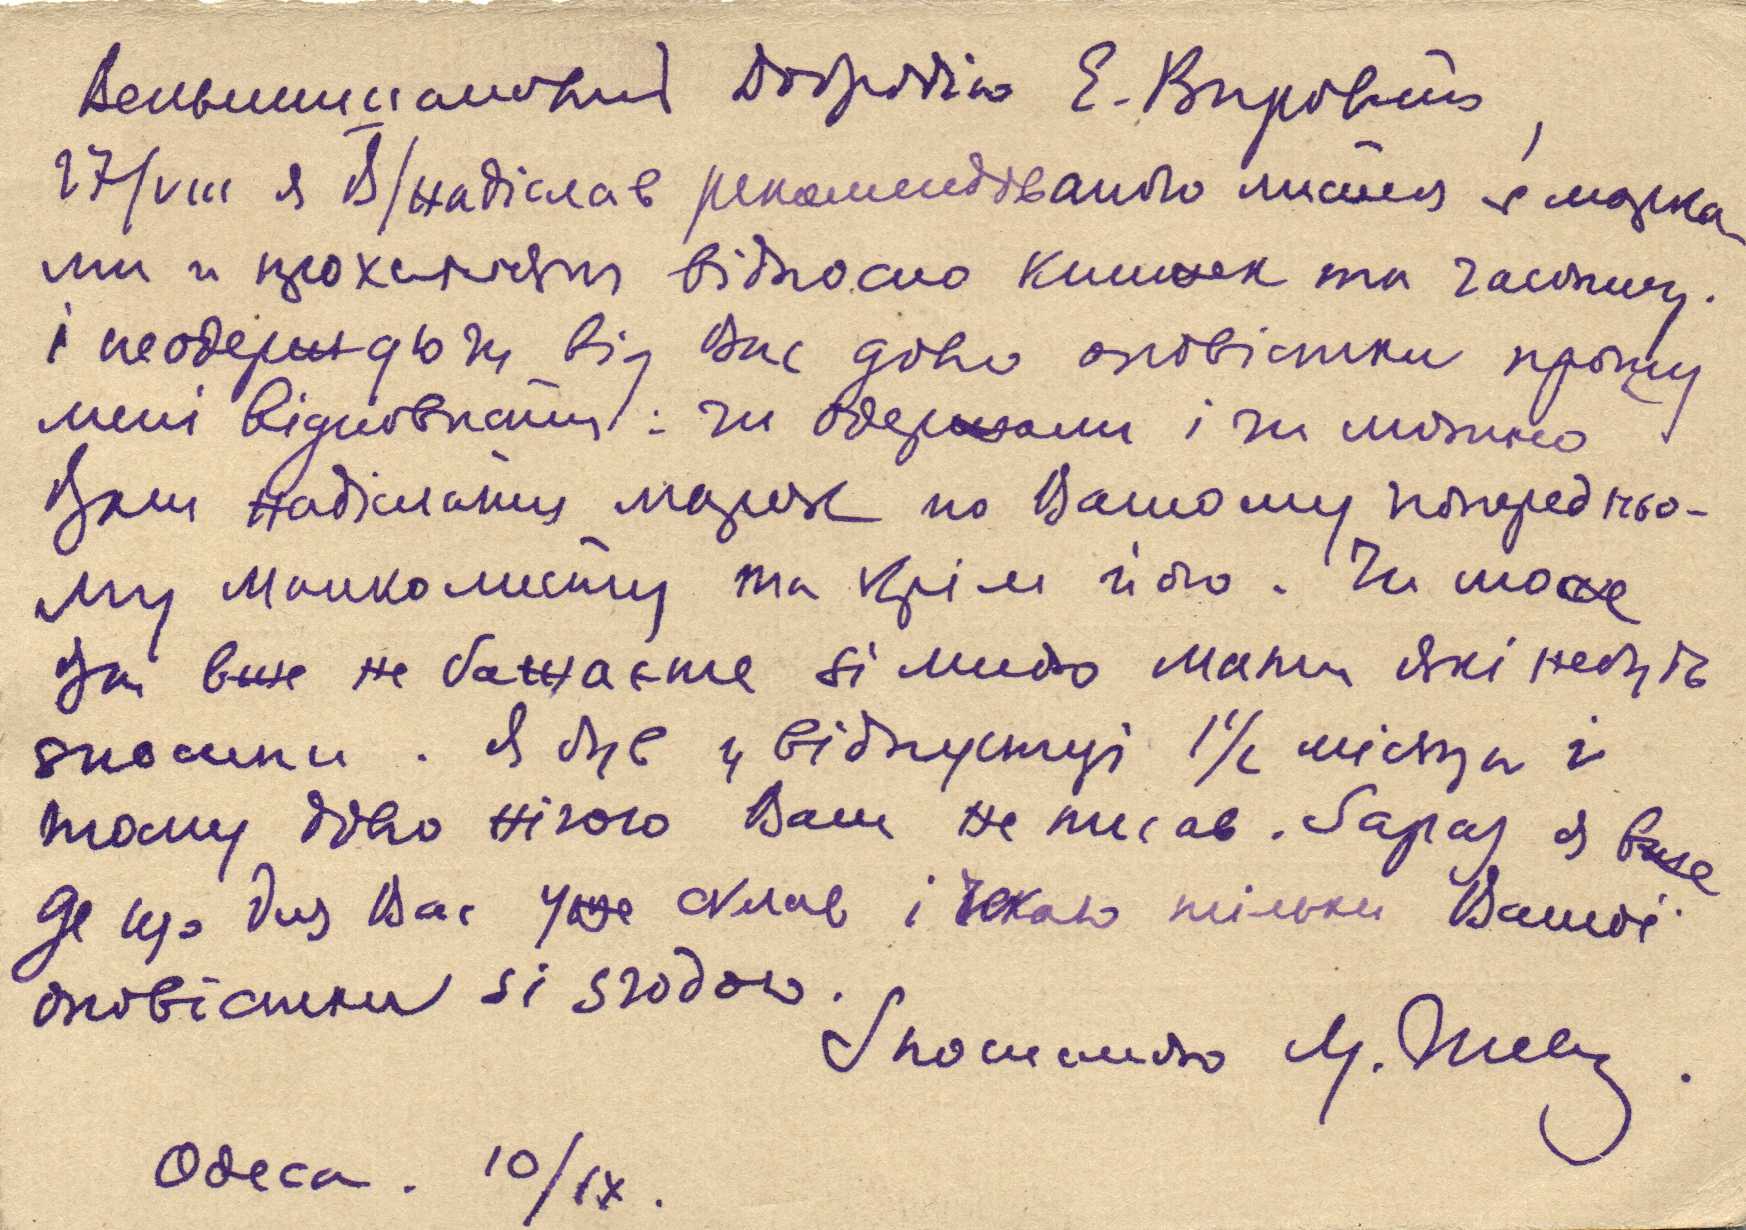 Вельмишановний Добродію Є. Вировий,
27/VIII я В/надіслав рекомендованого листа з марка-
ми и проханням відносно книжек та часопису.
і неодержуючи від Вас довго оповістки прошу
мені відповісти: чи одержали і чи можно
Вам надіслати марок по Вашому попередньо-
му манколисту та крім його. Чи може
Ви вже не бажаєте зі мною мати які небудь
зносини. Я був у відпустці 1 1/2 місяци і
тому довго нічого Вам не писав. Зараз я вже
де що для Вас уже склав і чекаю тільки Вашої
оповістки зі згодою.
З пошаною М.
Одеса. 10/IX.